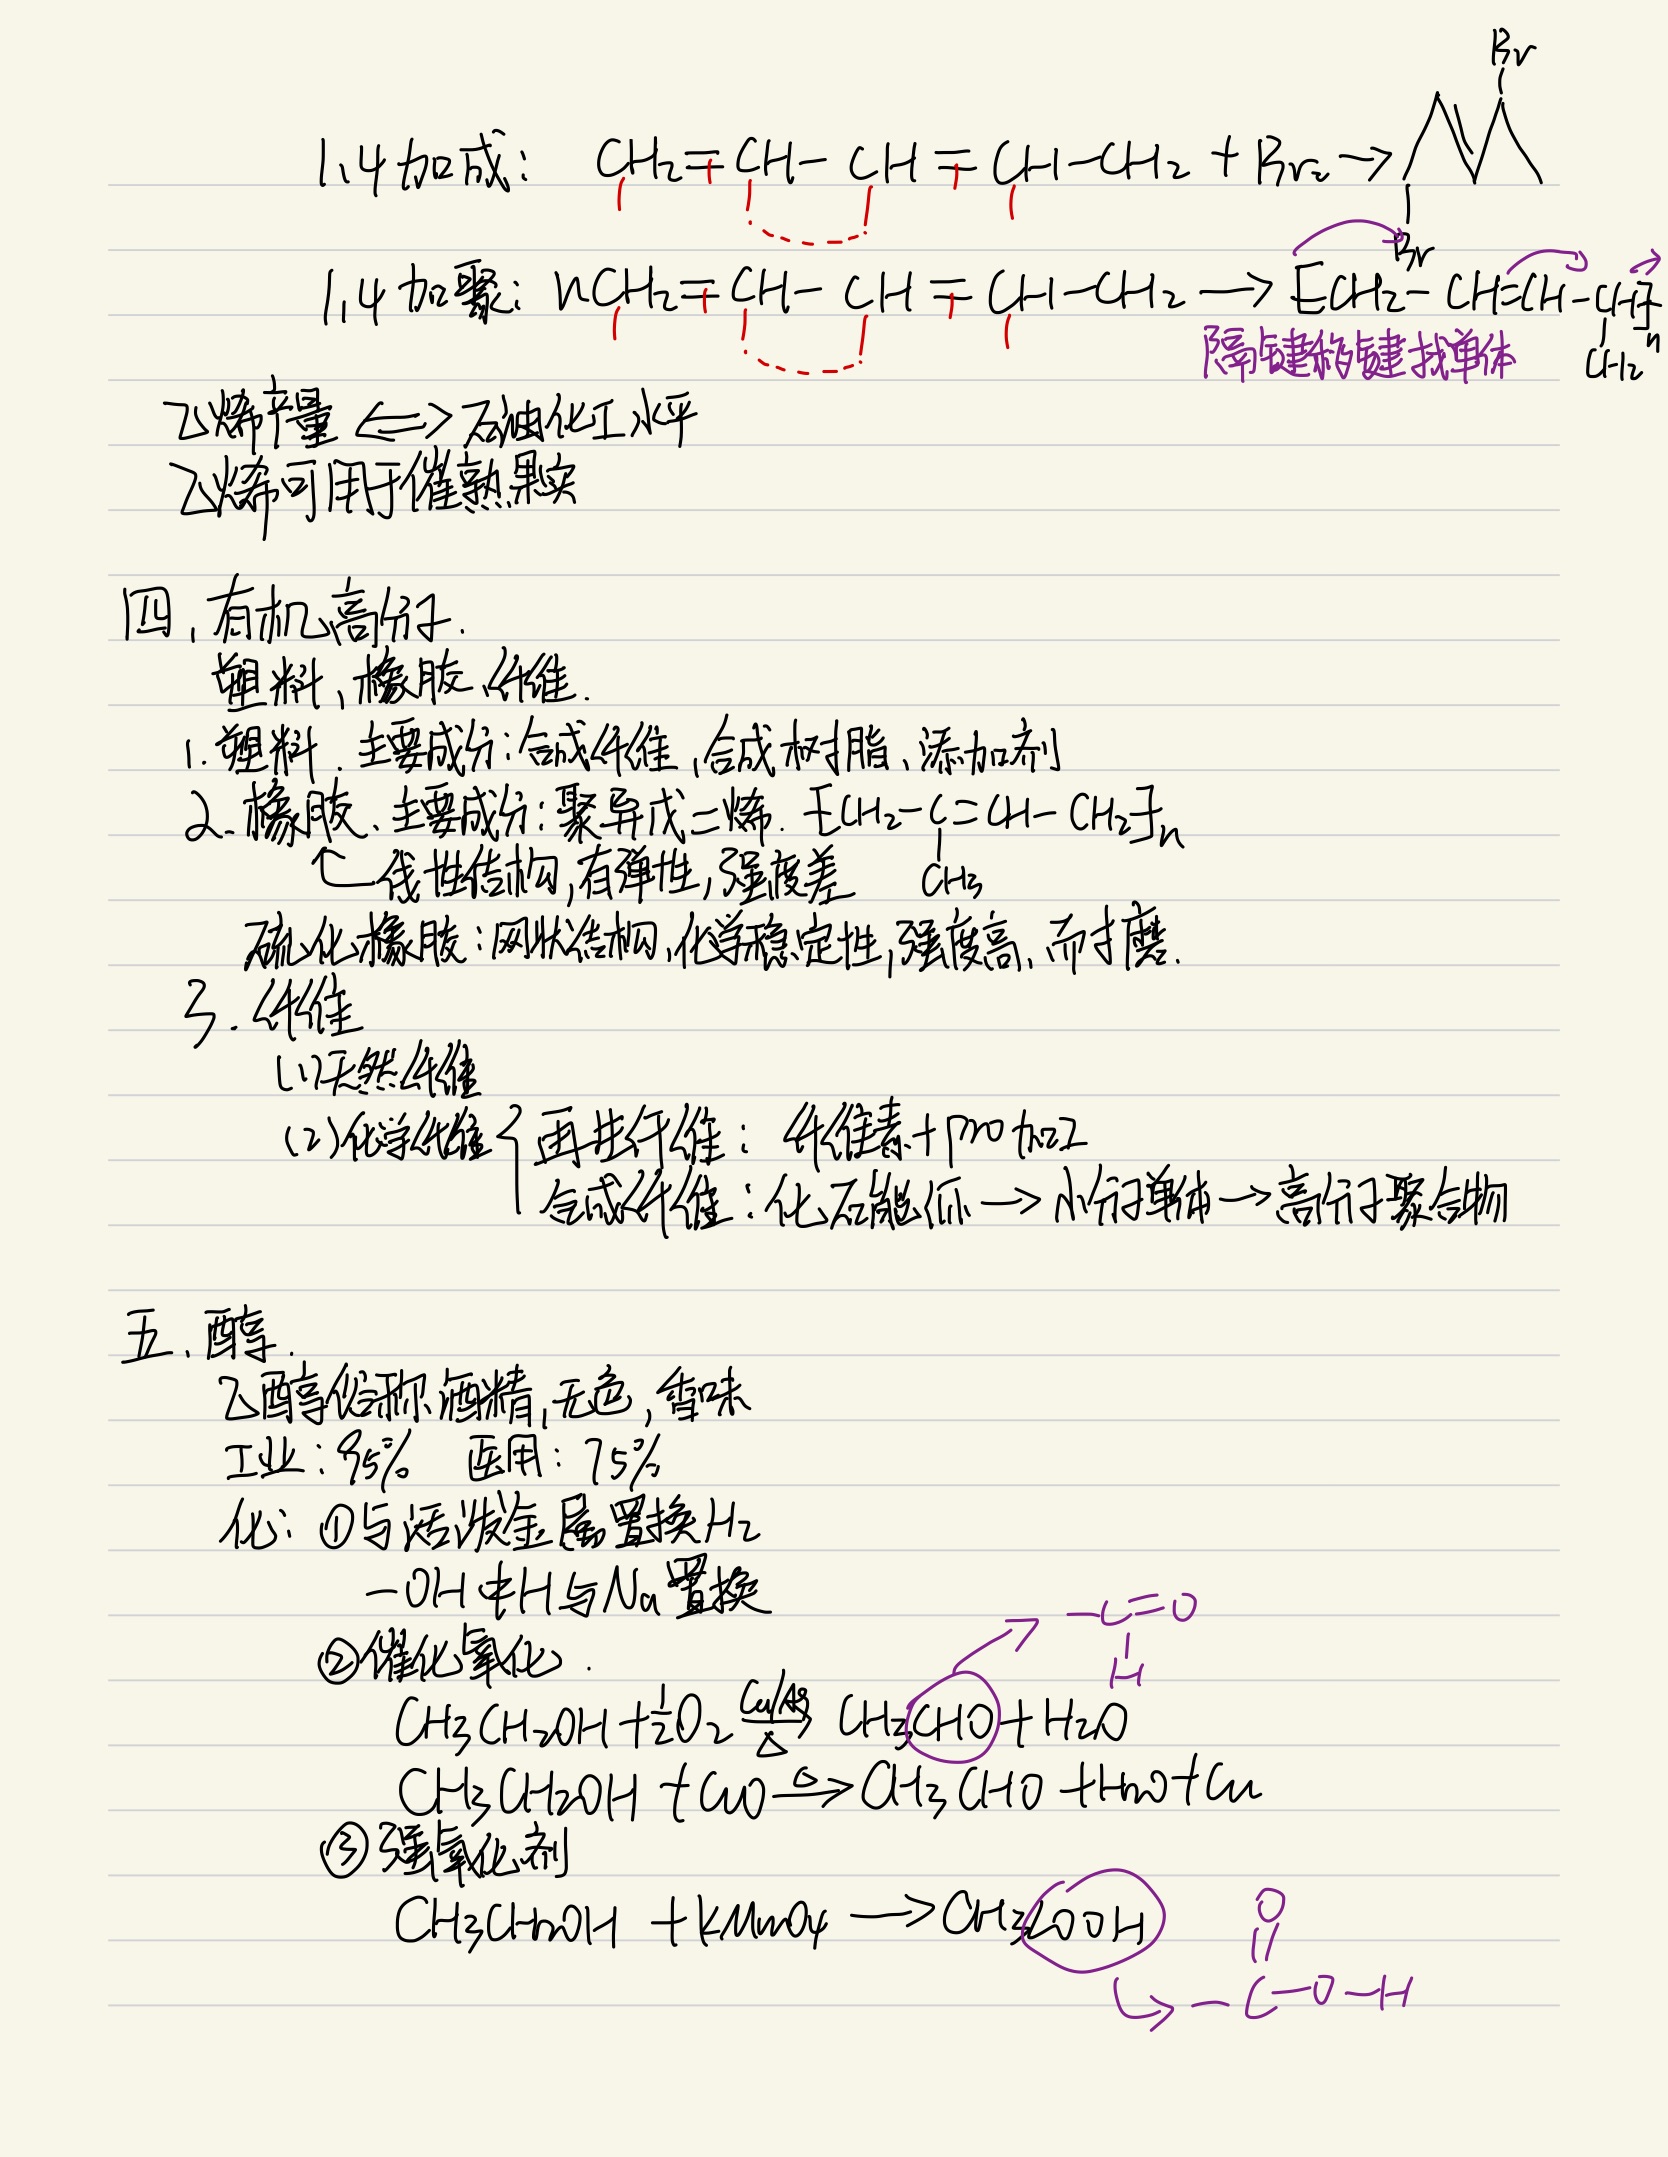 Br
1,4加成: CH2=CH-CH=CH-CH2+Br2→
Br
1,4加聚: nCH2=CH-CH=CH-CH2→[CH2-CH=CH-CH]n
CH2
隔键移键找单体
乙烯产量⟺石油化工水平
乙烯可用于催熟果实
四、有机高分子.
塑料、橡胶、纤维.
1.塑料、主要成分:合成纤维,合成树脂、添加剂
2.橡胶、主要成分:聚异戊二烯.[CH2-C=CH-CH2]n
CH3
线性结构,有弹性,强度差
硫化橡胶:网状结构,化学稳定性,强度高、耐磨.
3.纤维
(1)天然纤维
(2)化学纤维{再生纤维:纤维素+pro加工
合成纤维:化石能源→小分子单体→高分子聚合物
五、醇.
乙醇俗称酒精,无色,香味
工业:95% 医用:75%
化:①与活泼金属置换H2
-OH中H与Na置换
-C=O
H
②催化氧化.
CH3CH2OH+½O2 Cu/Ag △→ CH3CHO+H2O
CH3CH2OH+CuO △→ CH3CHO+H2O+Cu
③强氧化剂
CH3CH2OH+KMnO4→CH3COOH
O
-C-O-H